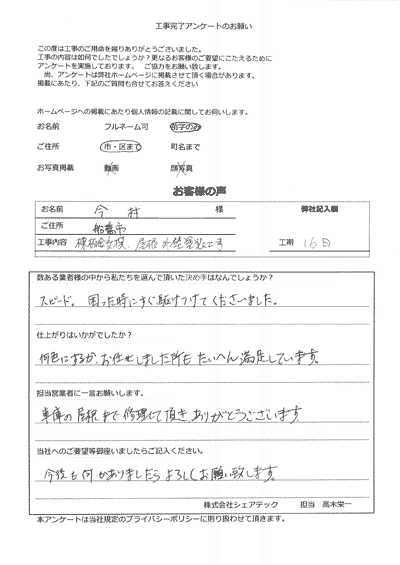 工事完了アンケートのお願い
この度は工事のご用命を賜りありがとうございました。
工事の内容は如何でしたでしょうか？更なるお客様のご要望にこたえるために
アンケートを実施しております。 ご協力をお願い致します。
尚、アンケートは弊社ホームページに掲載させて頂く場合があります。
掲載にあたり、下記のご質問も合せてお答えください
ホームページへの掲載にあたり個人情報の記載に関してお伺いします。
お名前 フルネーム可 苗字のみ
ご住所 市・区まで 町名まで
お写真掲載 顔写真
お客様の声
お名前 今村 様 弊社記入欄
ご住所 船橋市
工事内容 棟板金交換、屋根外壁塗装工事 工期 16日
数ある業者様の中から私たちを選んで頂いた決め手はなんでしょうか？
スピード。困った時にすぐ駆けつけてくださいました。
仕上がりはいかがでしたか？
何色にするか、お任せしました所もたいへん満足しています。
担当営業者に一言お願いします。
車庫の屋根まで修理して頂きありがとうございます
当社へのご要望等御座いましたらご記入ください。
今後も何かありましたらよろしくお願い致します。
株式会社シェアテック 担当 髙木栄一
本アンケートは当社規定のプライバシーポリシーに則り扱わせて頂きます。